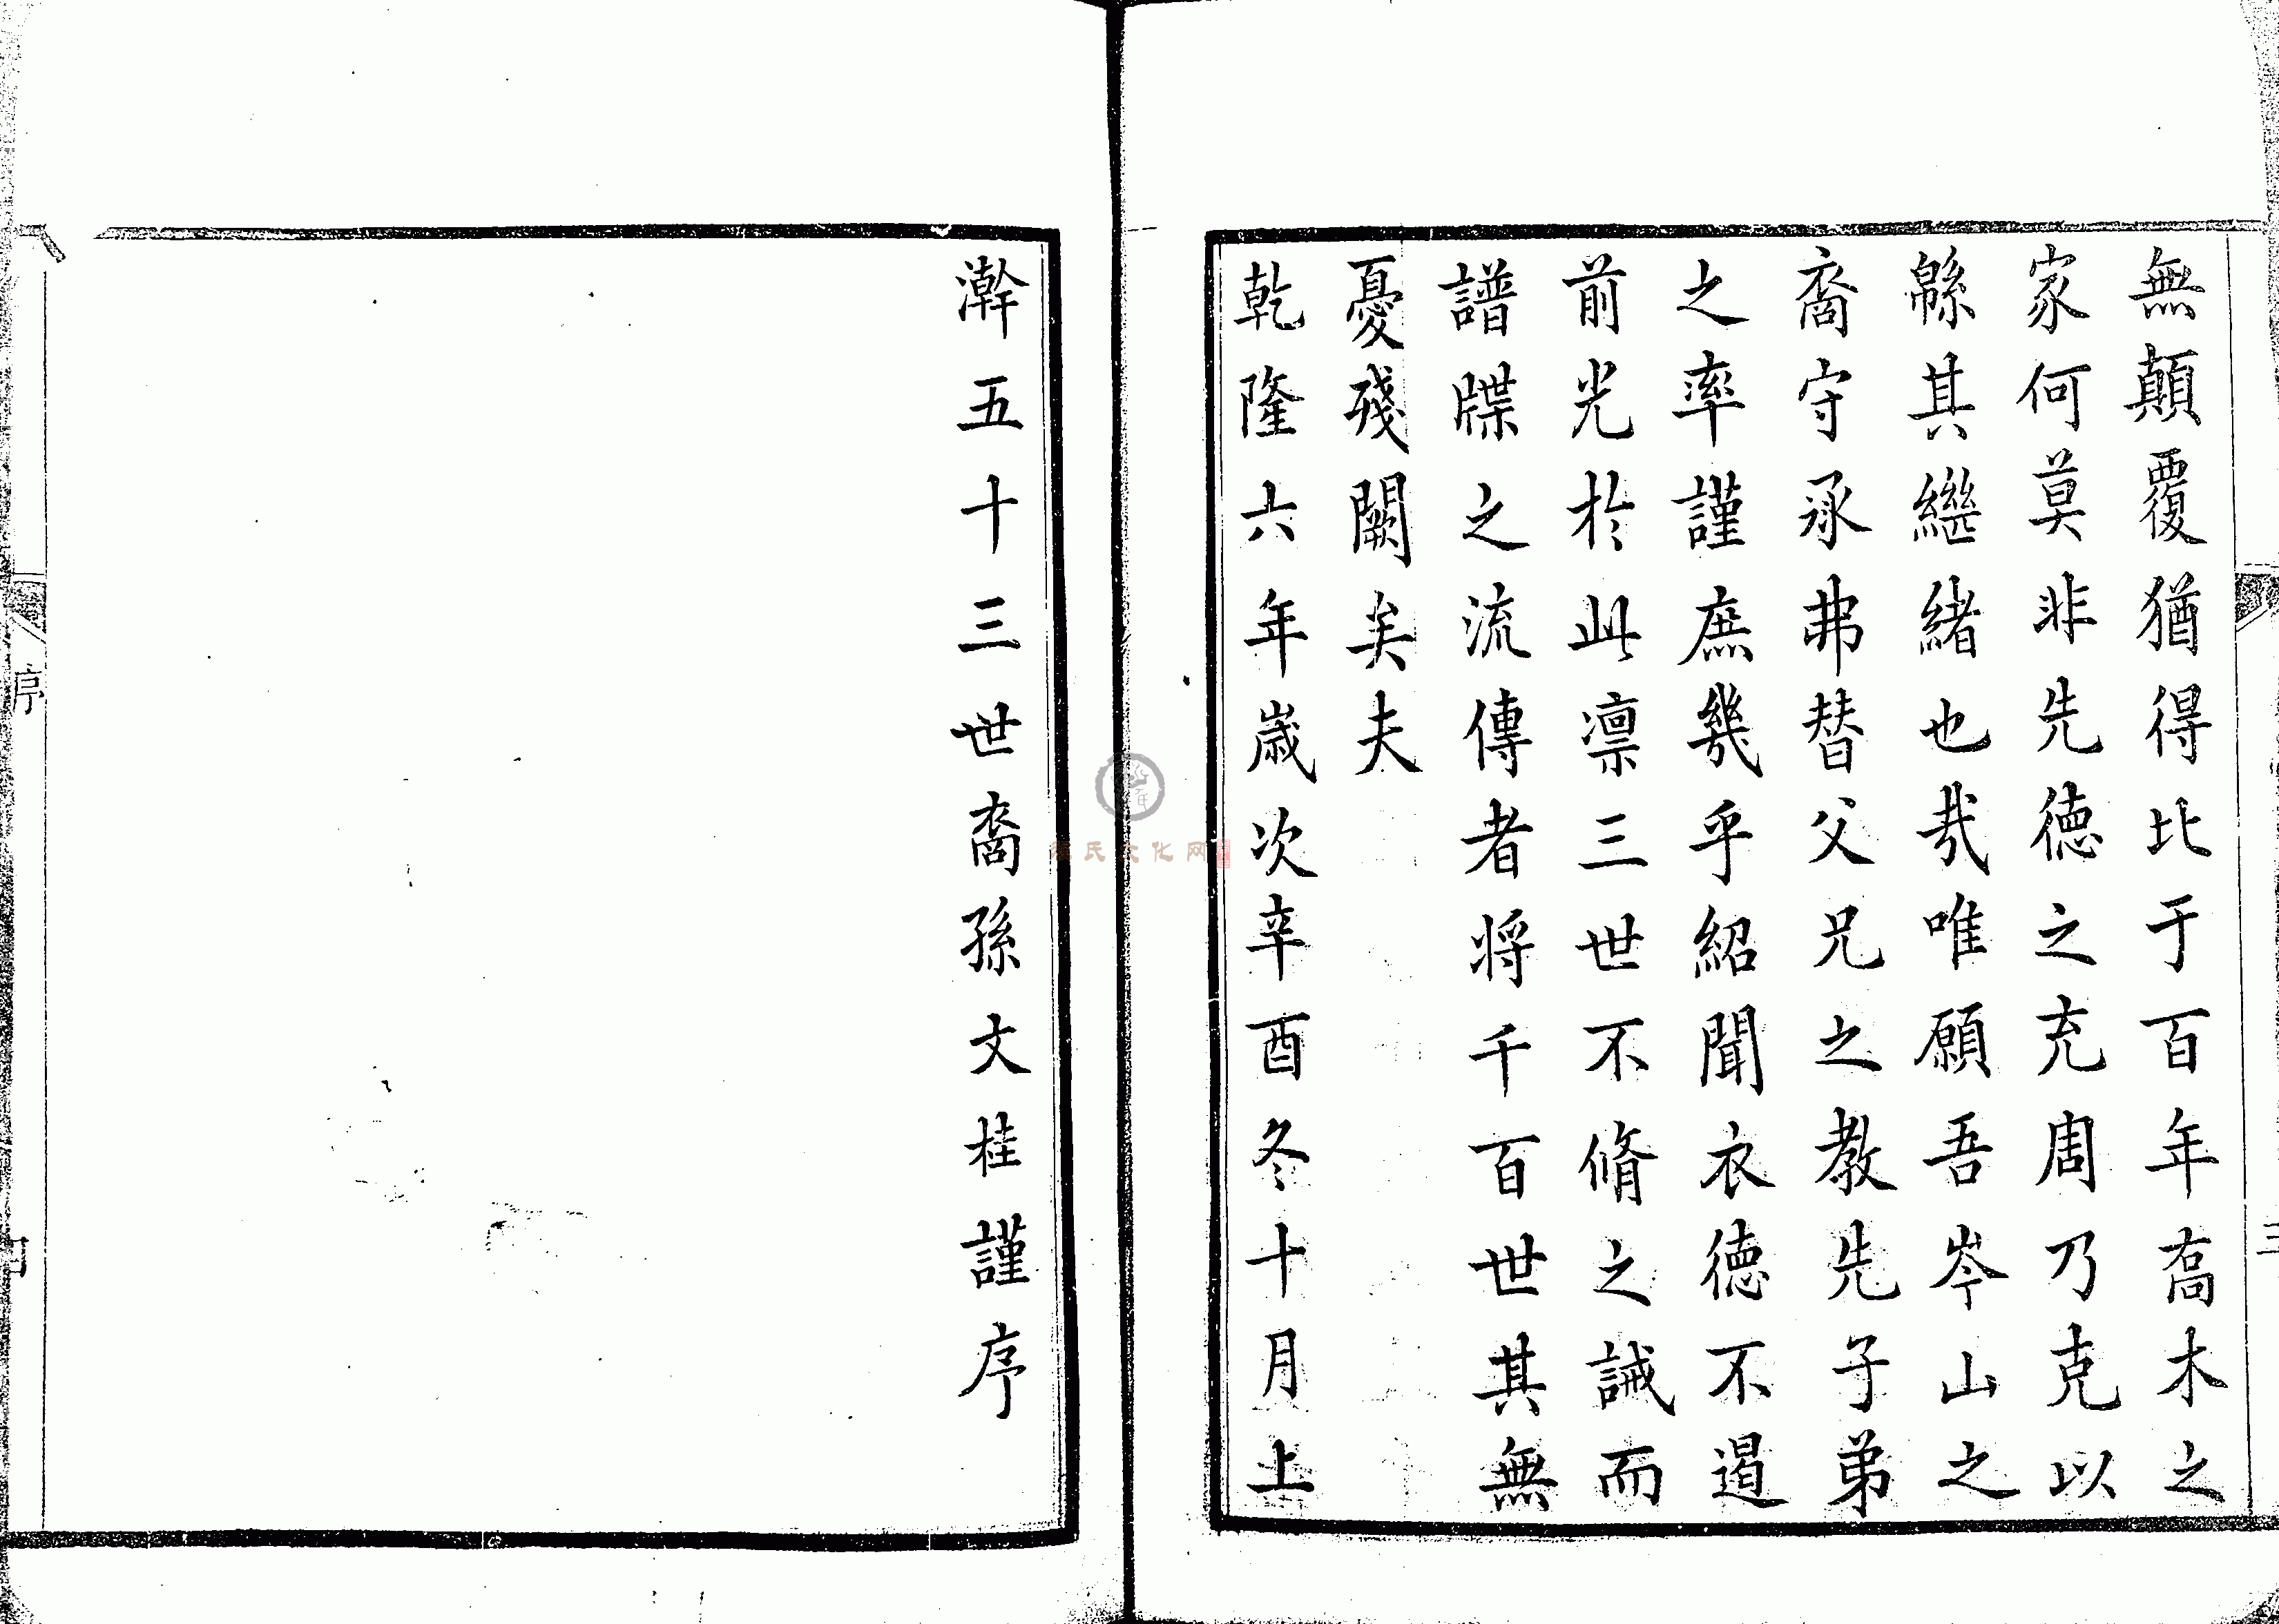 無顛覆猶得比于百年喬木之
家何莫非先德之充周乃克以
緜其繼緒也哉唯願吾岑山之
裔守承弗替父兄之教先子弟
之率謹庶幾乎紹聞衣德不遏
前光於此凛三世不脩之誡而
譜牒之流傳者将千百世其無
憂殘闕矣夫
乾隆六年歲次辛酉冬十月上
澣五十三世裔孫文桂謹序
序
四
三
氏文化网